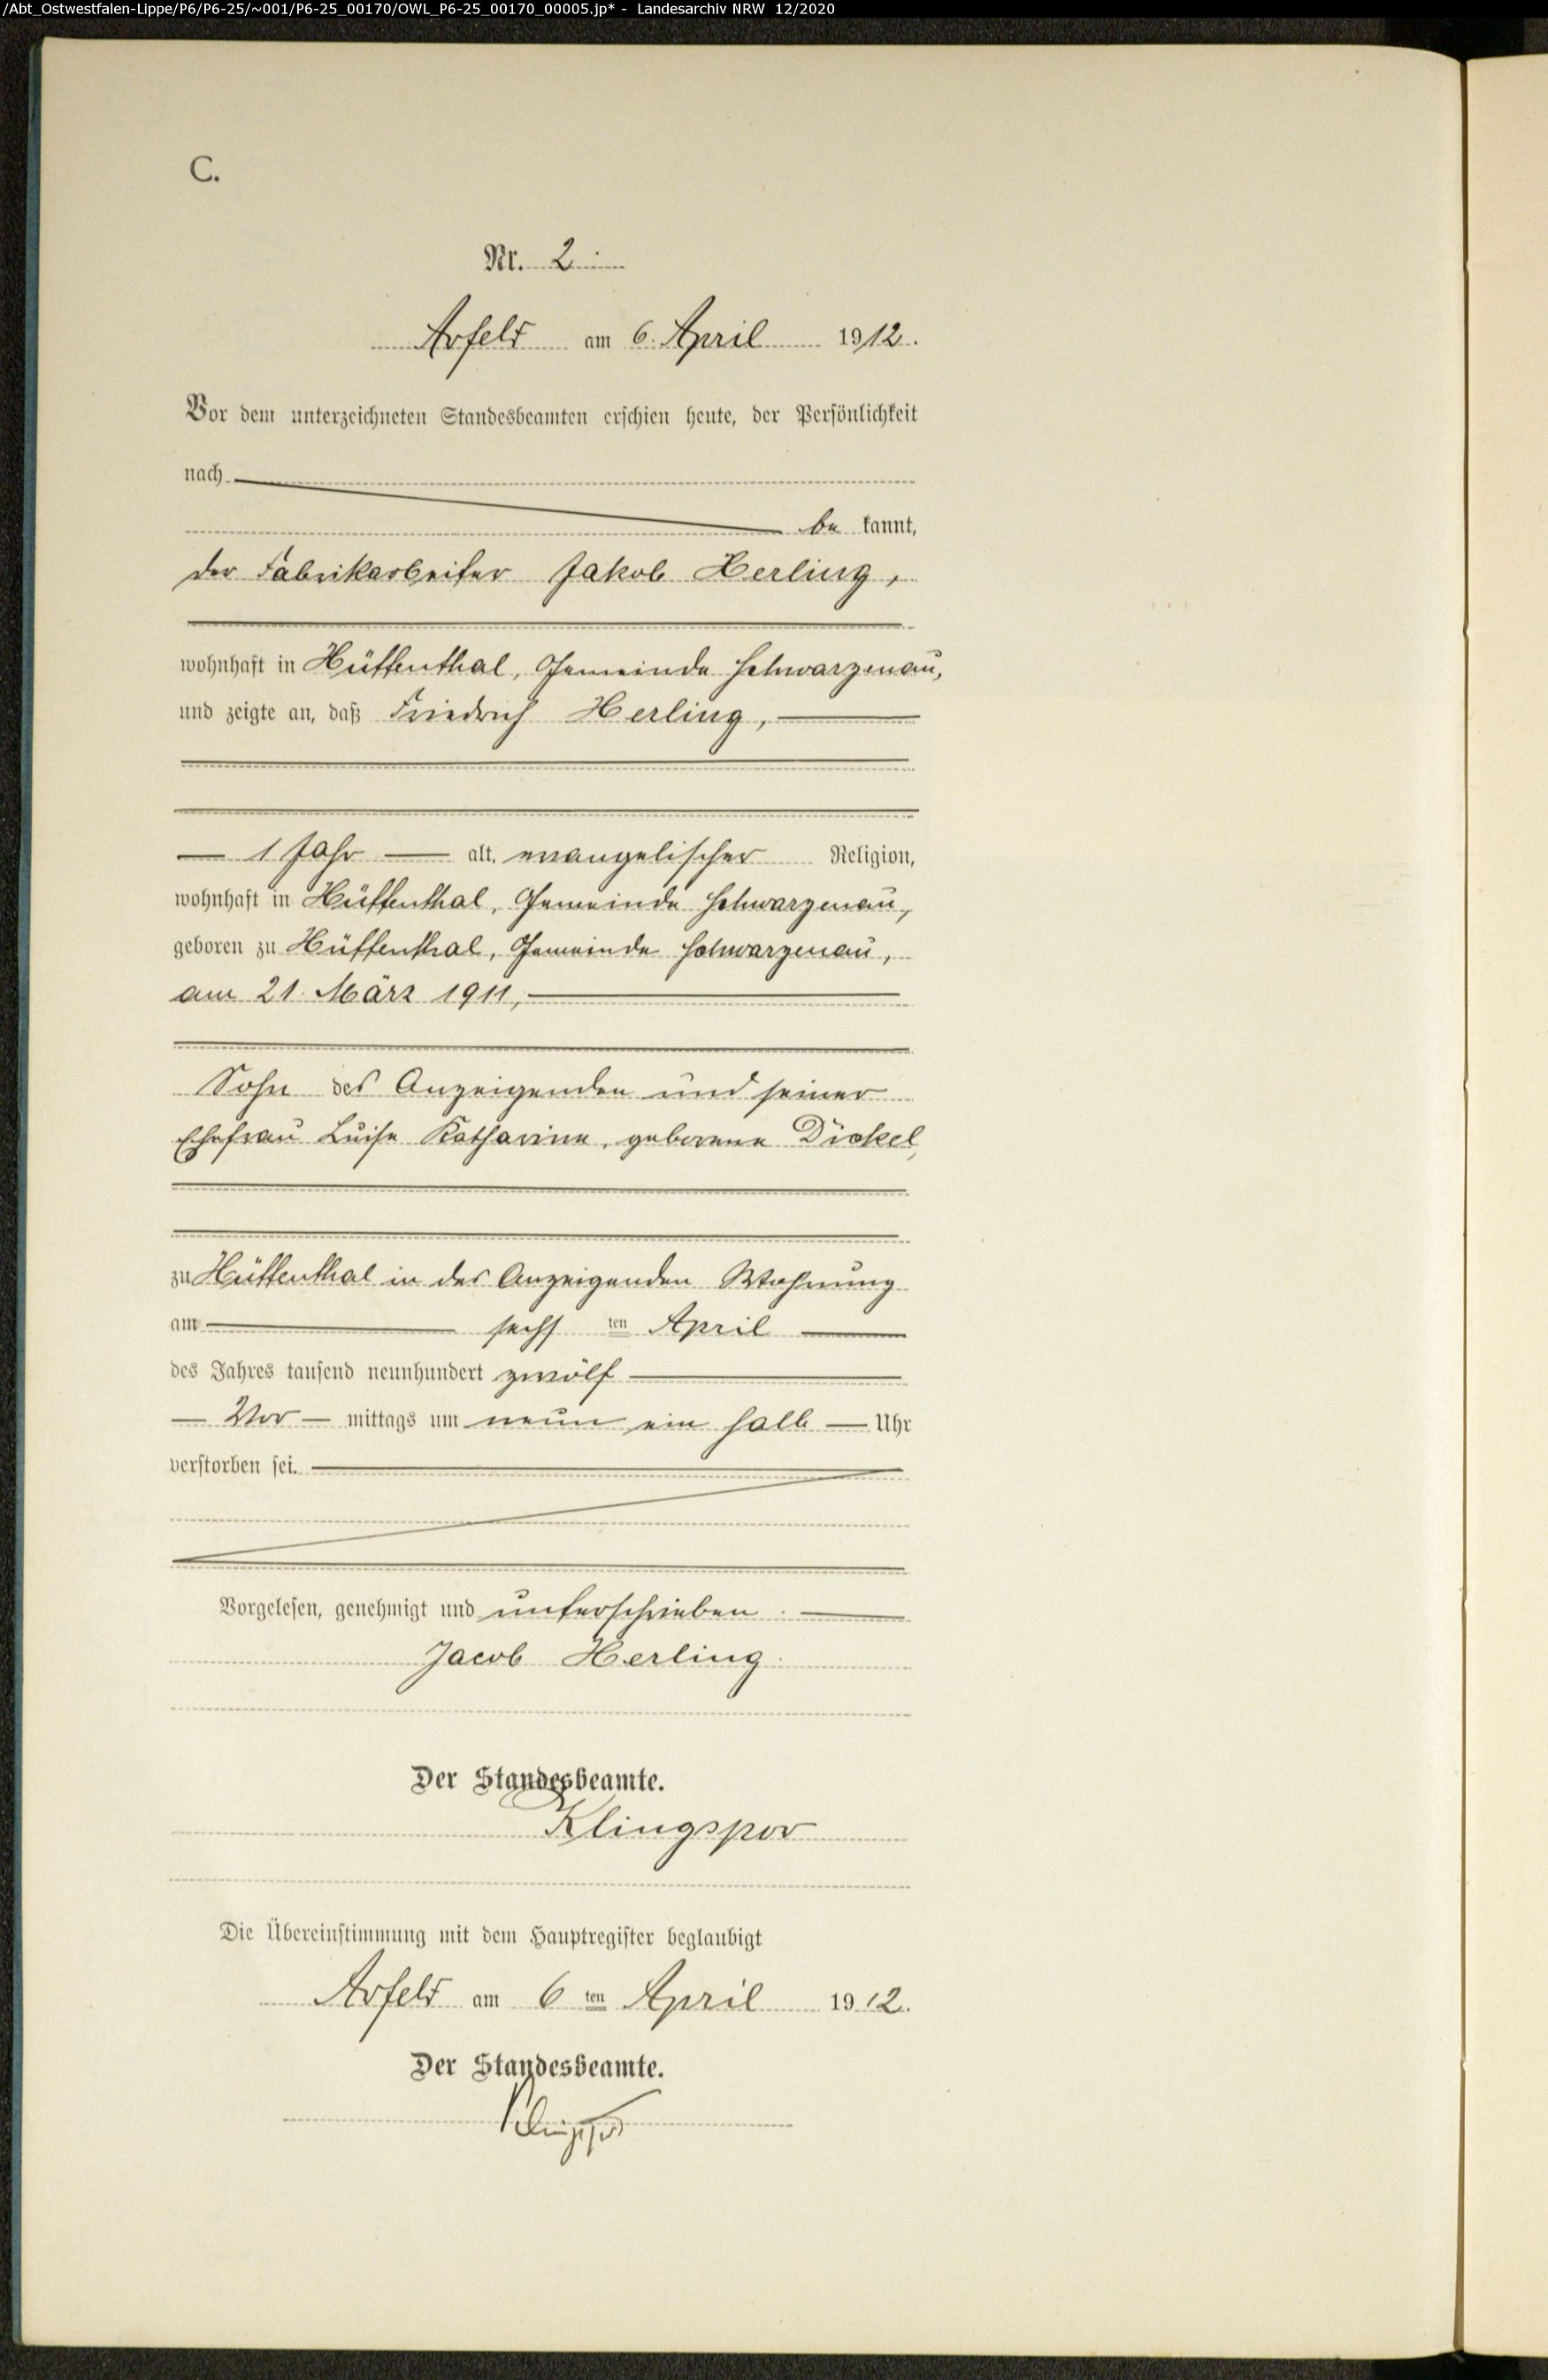 /Abt_Ostwestfalen-Lippe/P6/P6-25/~001/P6-25_00170/OWL_P6-25_00170_00005.jp* - Landesarchiv NRW 12/2020
C.
Nr. 2
Arfeld am 6. April 1912.
Vor dem unterzeichneten Standesbeamten erschien heute, der Persönlichkeit
nach
be kannt,
der Fabrikarbeiter Jakob Herling,
wohnhaft in Hüttenthal, Gemeinde Schwarzenau,
und zeigte an, daß Friedrich Herling,
1 Jahr alt, evangelischer Religion,
wohnhaft in Hüttenthal, Gemeinde Schwarzenau,
geboren zu Hüttenthal, Gemeinde Schwarzenau,
am 21. März 1911,
Sohn des Anzeigenden und seiner
Ehefrau Luise Katharine, geborene Dickel,
zu Hüttenthal in des Anzeigenden Wohnung
am sechs ten April
des Jahres tausend neunhundert zwölf
Vor mittags um neun ein halb Uhr
verstorben sei.
Vorgelesen, genehmigt und unterschrieben.
Jacob Herling.
Der Standesbeamte.
Klingspor
Die Übereinstimmung mit dem Hauptregister beglaubigt
Arfeld am 6 ten April 1912.
Der Standesbeamte.
Klingspor